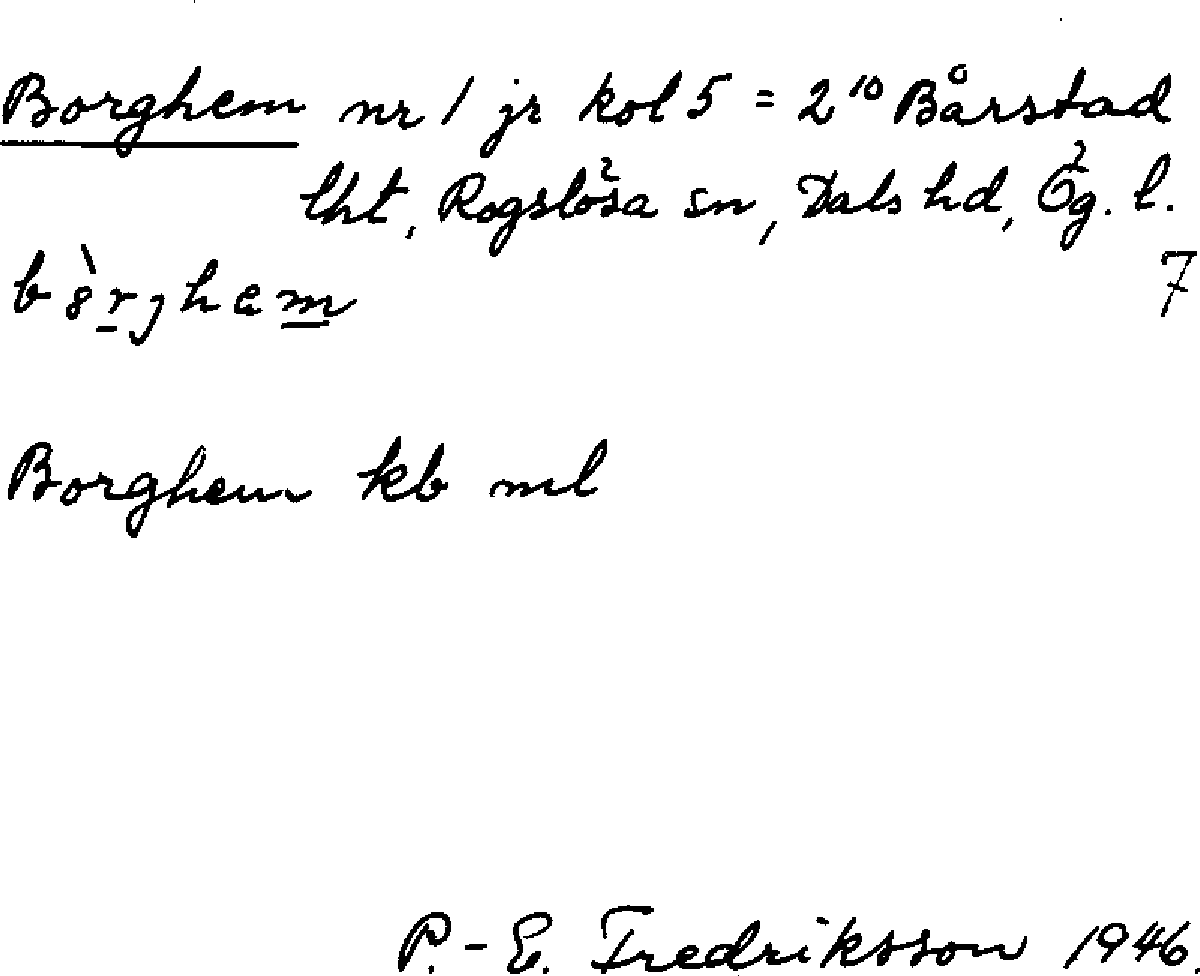 Borghem nr 1 jr kol 5 = 2¹⁰ Bårstad
lht, Rogslösa sn, Dals hd, Ög. l.
7
Borghem kb ml
P.-E. Fredriksson 1946.